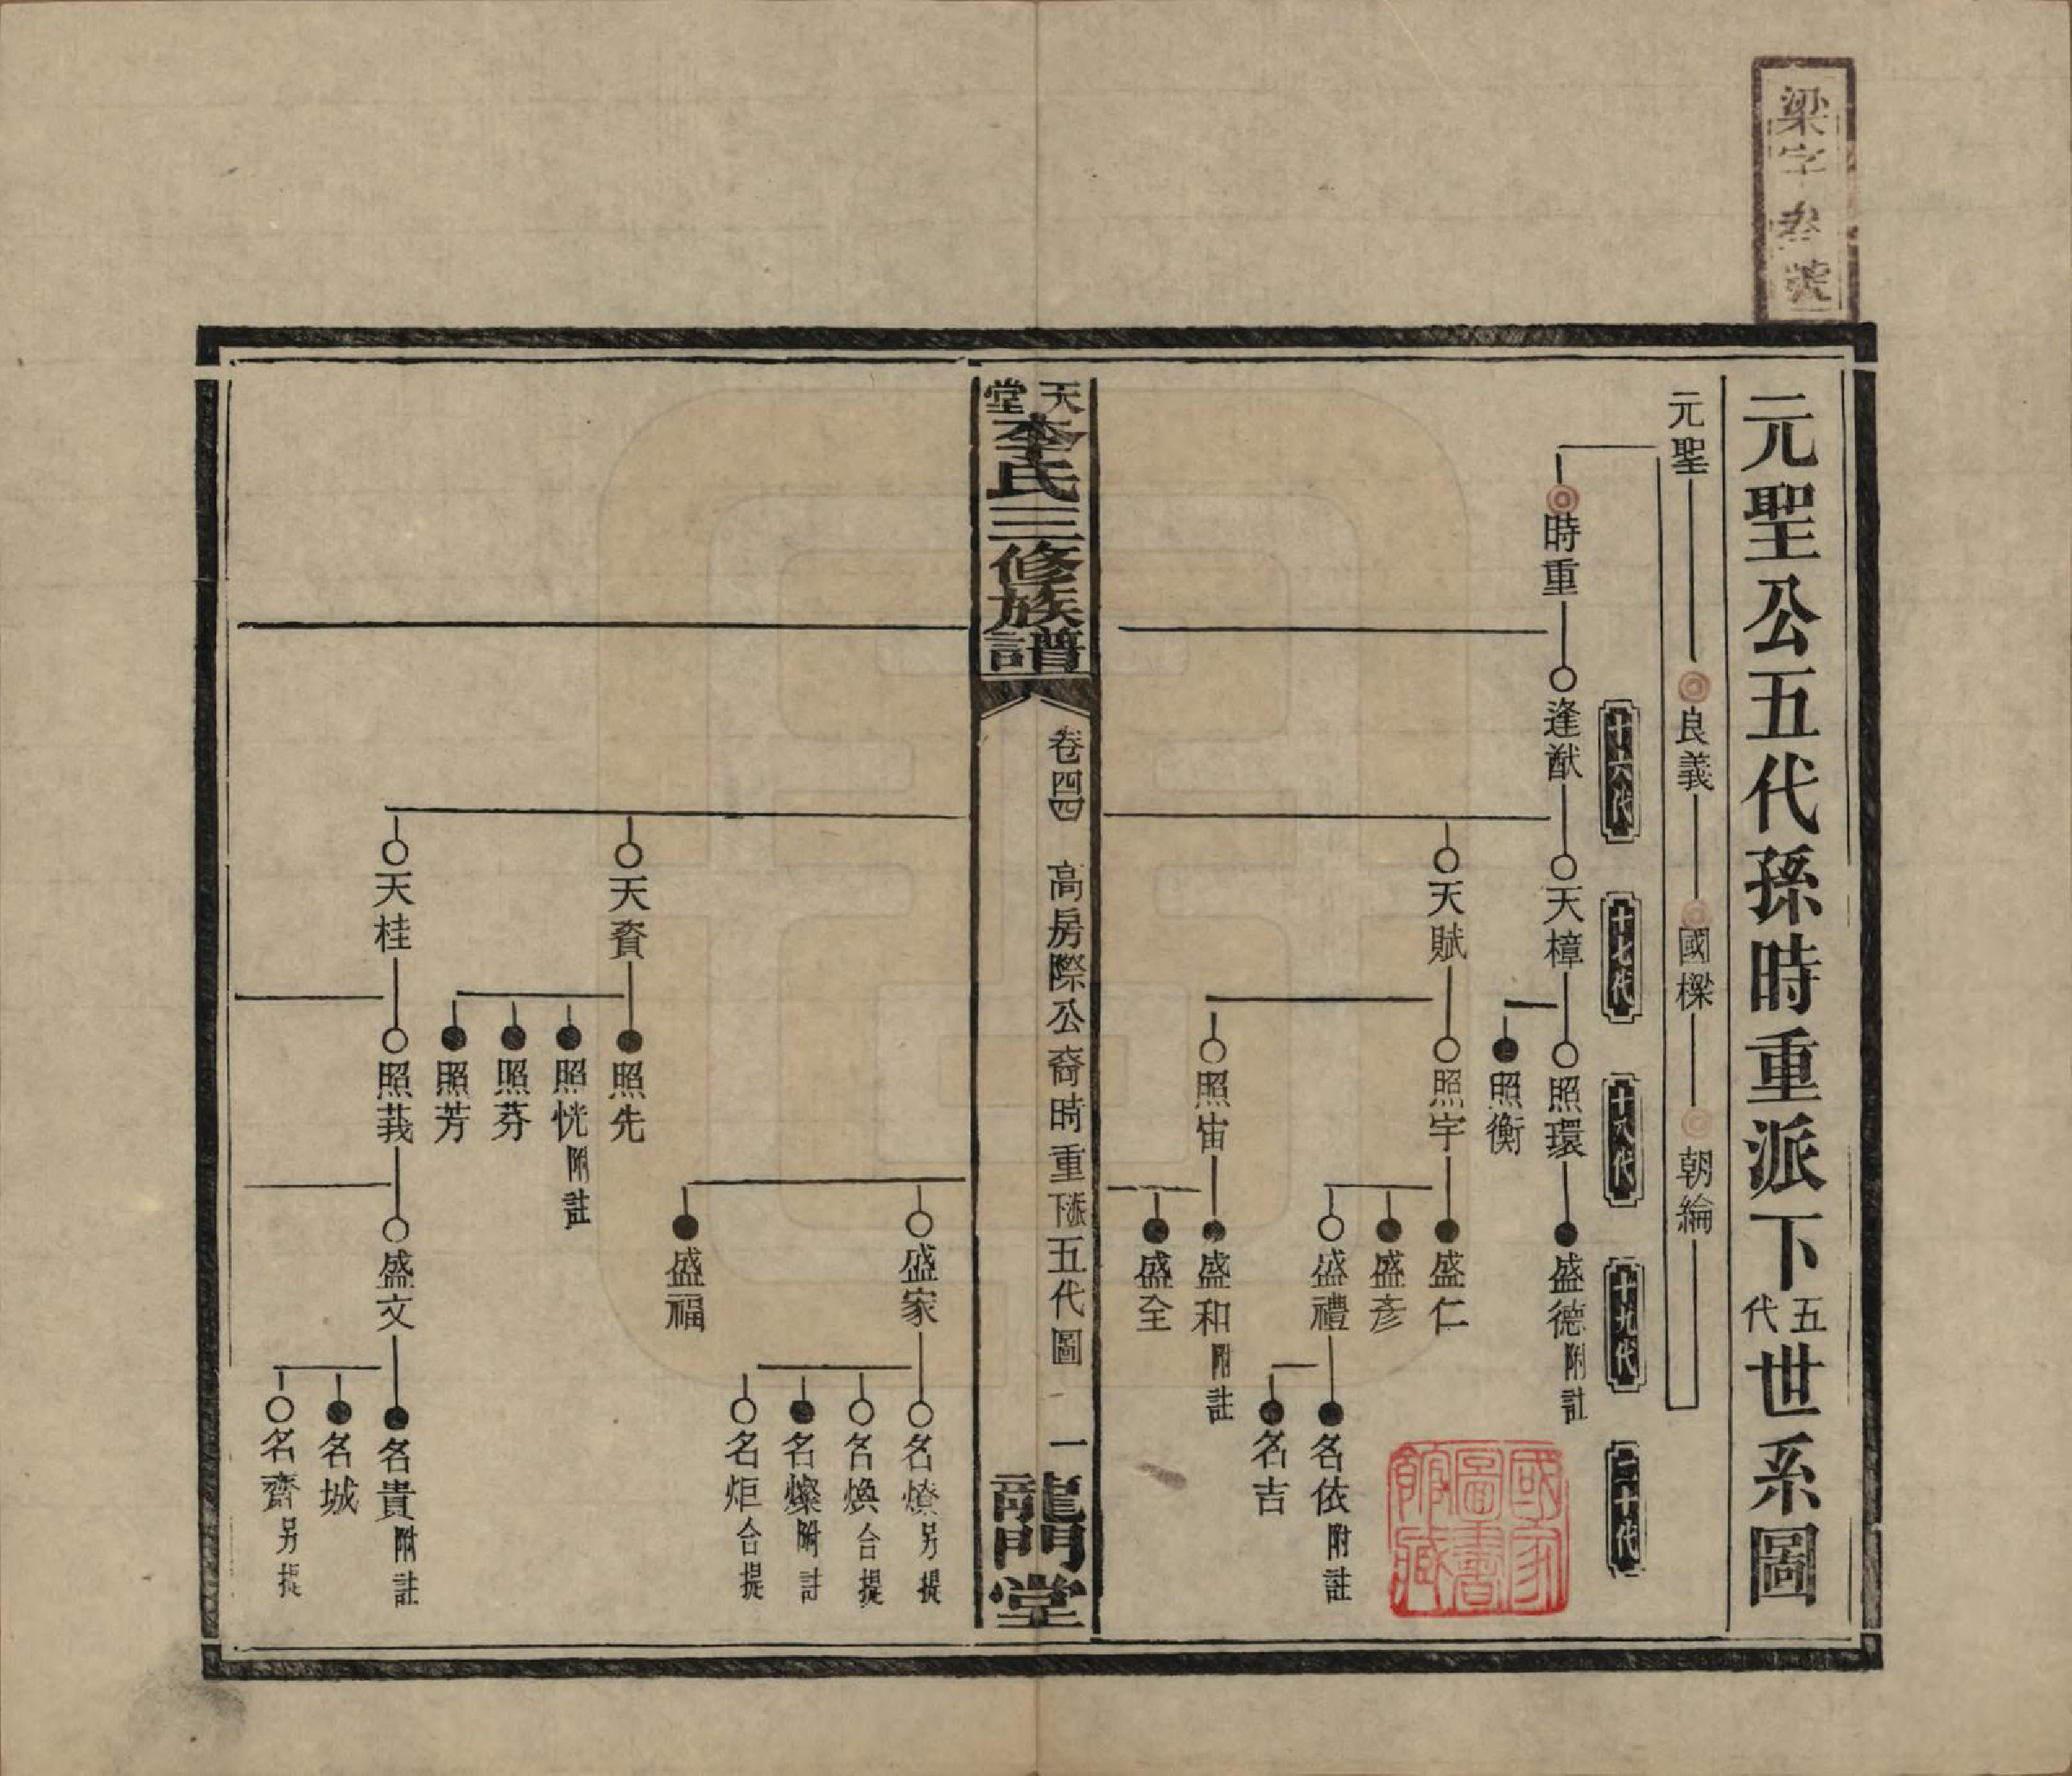 梁字卷
元聖公五代孫時重派下五代世系圖
元聖
良義
國樑
朝綸
十六代
十七代
十八代
十九代
二十代
時重
逢猷
天樟
照環
盛德 附註
照衡
天賦
照宇
盛仁
盛彥
盛禮
名依 附註
名吉
照宙
盛和 附註
盛全
國家圖書館藏
天堂李氏三修族譜
卷四四
高房際公裔時重派下五代圖
一
龍門堂
盛家
名燎 另提
名煥 合提
名燦 附註
名炬 合提
盛福
天賚
照先
照恍 附註
照芬
照芳
天桂
照莪
盛文
名貴 附註
名城
名齋 另提